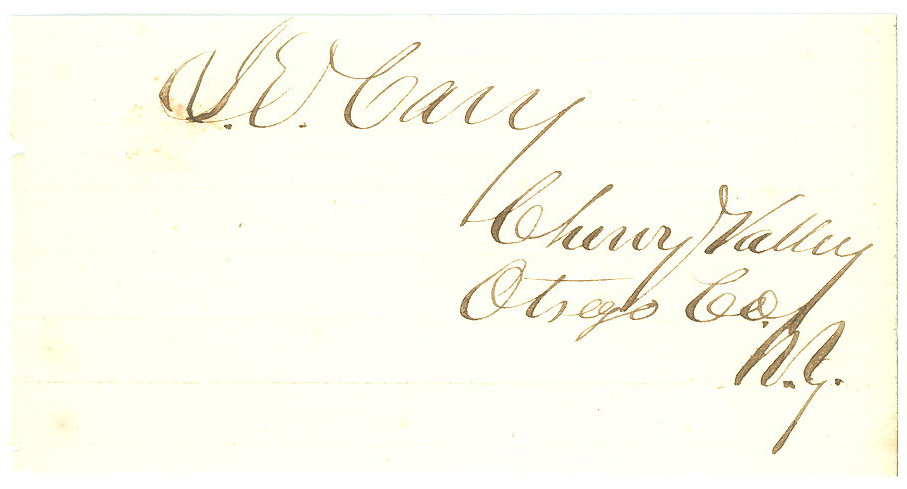 J. E. Cary
Cherry Valley
Otsego Co.
N.Y.